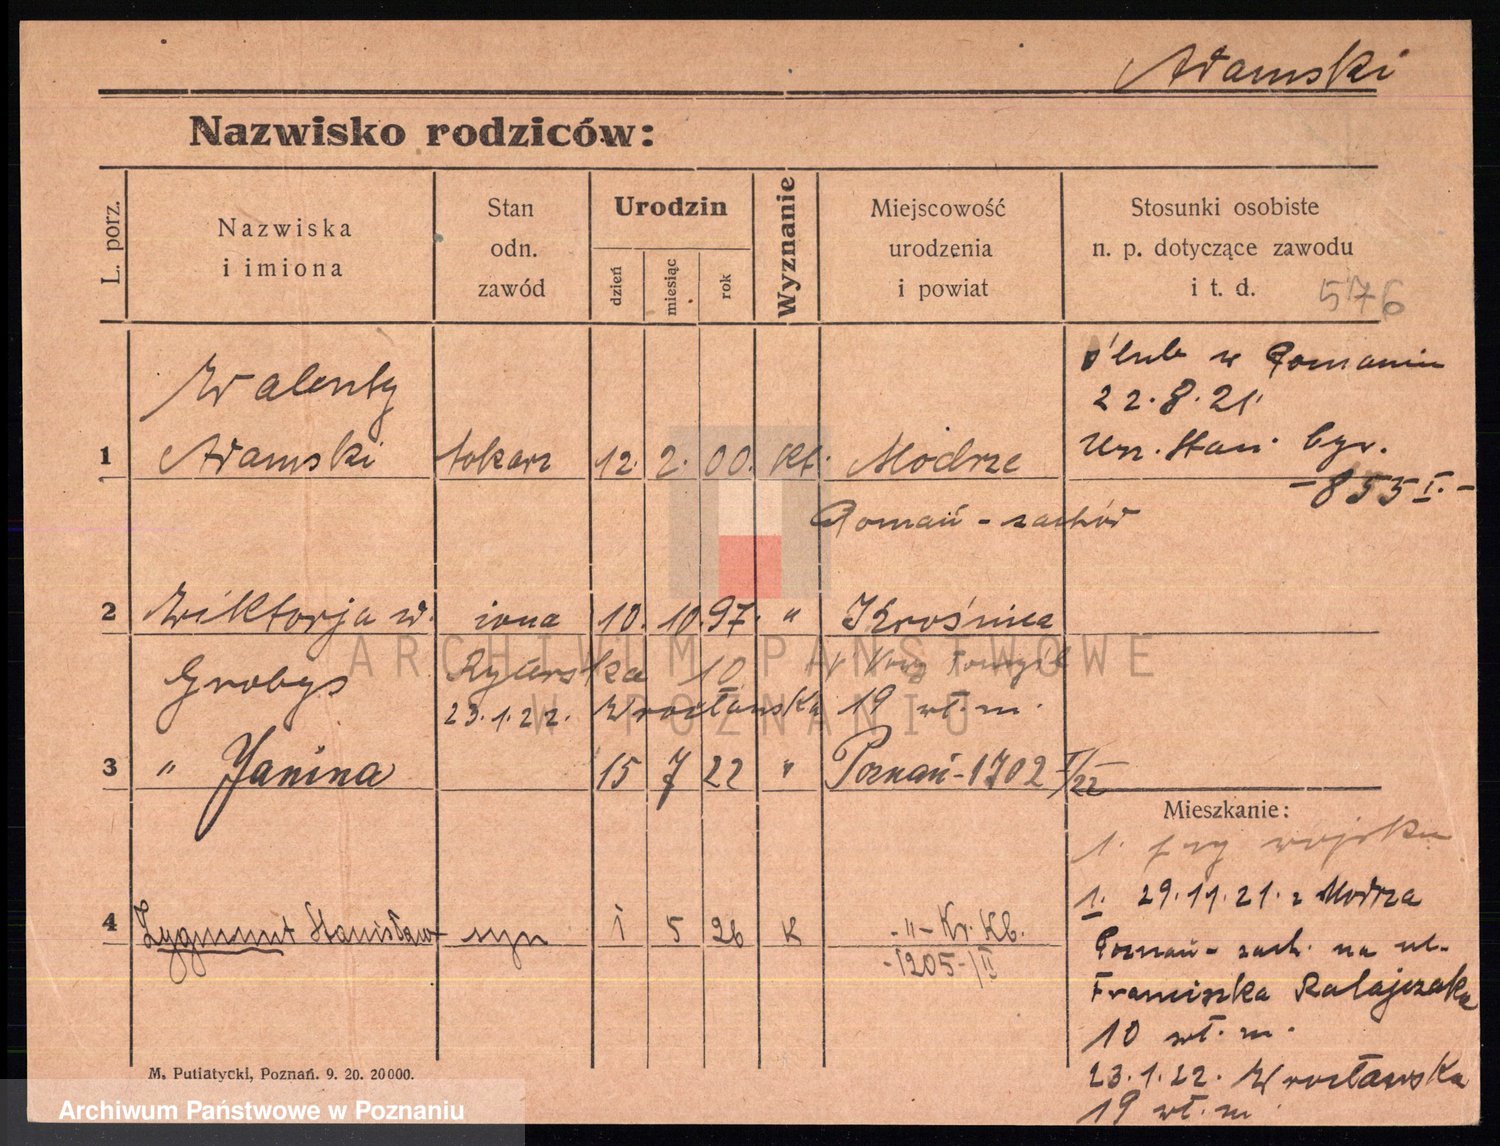 Adamski
Nazwisko rodziców:
L. porz.
Nazwiska
i imiona
Stan
odn.
zawód
Urodzin
dzień
miesiąc
rok
Wyznanie
Miejscowość
urodzenia
i powiat
Stosunki osobiste
n. p. dotyczące zawodu
i t. d.
576
ślub w Poznaniu
22.8.21
Urz. Stan. Cyw.
-853 I.-
Walenty
1 Adamski tokarz 12. 2. 00. kt. Modrze
Poznań - zachód
2 Wiktorja ur. żona 10. 10. 97. " Krośnica
Grobys Rycerska 10 Nowy Tomyśl
23.1.22. Wrocławska 19 wł. m.
3 " Janina 15 7 22 " Poznań - 1702 I/22
Mieszkanie:
1. wojsku
1. 29.11.21. z Modrza
Poznań - zach. na ul.
Franciszka Ratajczaka
10 wł. m.
23.1.22. Wrocławska
19 wł. m.
4 Zygmunt Stanisław syn 1 5 26 k -"- Kr. Kb.
-1205-/II
M. Putiatycki, Poznań. 9. 20. 20000.
ARCHIWUM PAŃSTWOWE
W POZNANIU
Archiwum Państwowe w Poznaniu